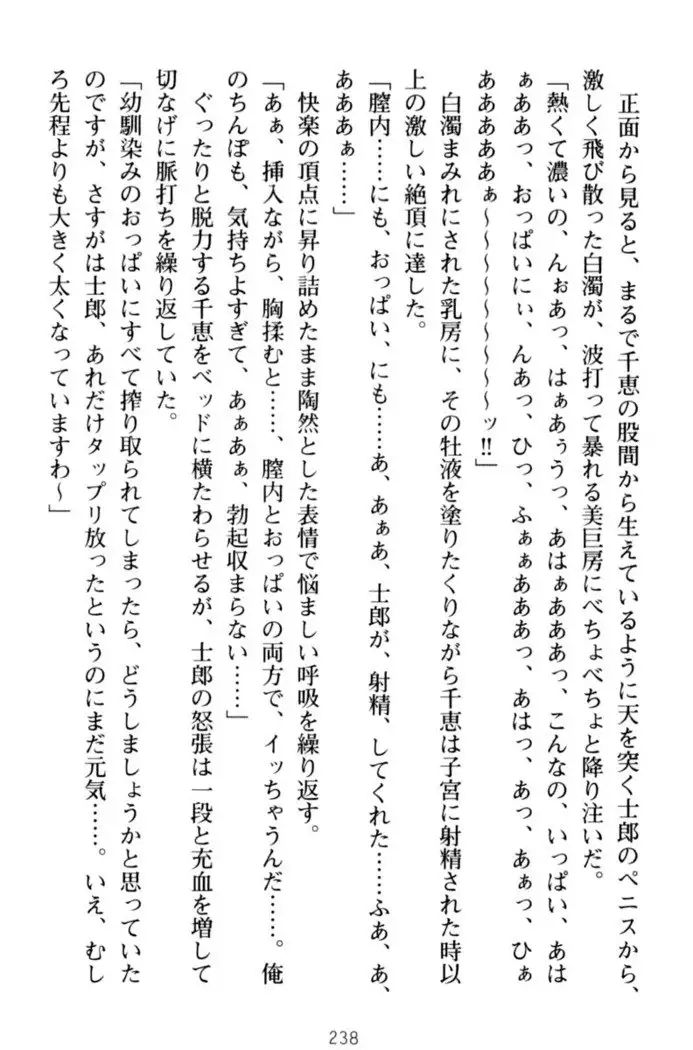 正面から見ると、まるで千恵の股間から生えているように天を突く士郎のペニスから、
激しく飛び散った白濁が、波打って暴れる美巨房にべちょべちょと降り注いだ。
「熱くて濃いの、んぉあっ、はぁあぅうっ、あはぁあああっ、こんなの、いっぱい、あは
ぁああっ、おっぱいにぃ、んあっ、ひっ、ふぁぁあああっ、あはっ、あっ、あぁっ、ひぁ
ああああああぁ〜〜〜〜〜〜〜〜ッ!!」
白濁まみれにされた乳房に、その牡液を塗りたくりながら千恵は子宮に射精された時以
上の激しい絶頂に達した。
「膣内……にも、おっぱい、にも……あ、あぁあ、士郎が、射精、してくれた……ふあ、あ、
あああぁ……」
快楽の頂点に昇り詰めたまま陶然とした表情で悩ましい呼吸を繰り返す。
「あぁ、挿入ながら、胸揉むと……、膣内とおっぱいの両方で、イッちゃうんだ……。俺
のちんぽも、気持ちよすぎて、あぁあぁ、勃起収まらない……」
ぐったりと脱力する千恵をベッドに横たわらせるが、士郎の怒張は一段と充血を増して
切なげに脈打ちを繰り返していた。
「幼馴染みのおっぱいにすべて搾り取られてしまったら、どうしましょうかと思っていた
のですが、さすがは士郎、あれだけタップリ放ったというのにまだ元気……。いえ、むし
ろ先程よりも大きく太くなっていますわ〜」
238